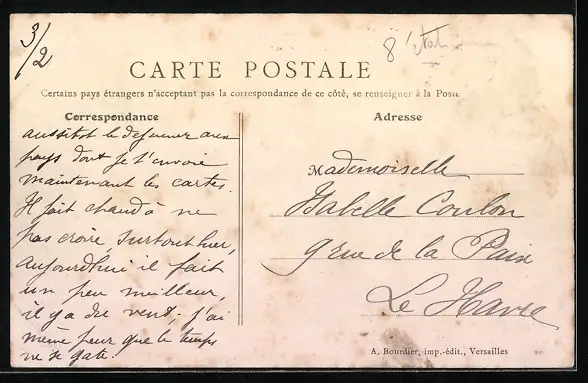 3/2
8
CARTE POSTALE
Certains pays étrangers n'acceptant pas la correspondance de ce côté, se renseigner à la Poste
Correspondance
Adresse
aussitot le dejeuner aux
pays dont je t'envoie
maintenant les cartes.
Il fait chaud à ne
pas croire, surtout hier,
aujourd'hui il fait
un peu meilleur,
il y a du vent; j'ai
même peur que le temps
ne se gate.
Mademoiselle
Isabelle Coulon
9 rue de la Paix
Le Havre
A. Bourdier, imp.-édit., Versailles